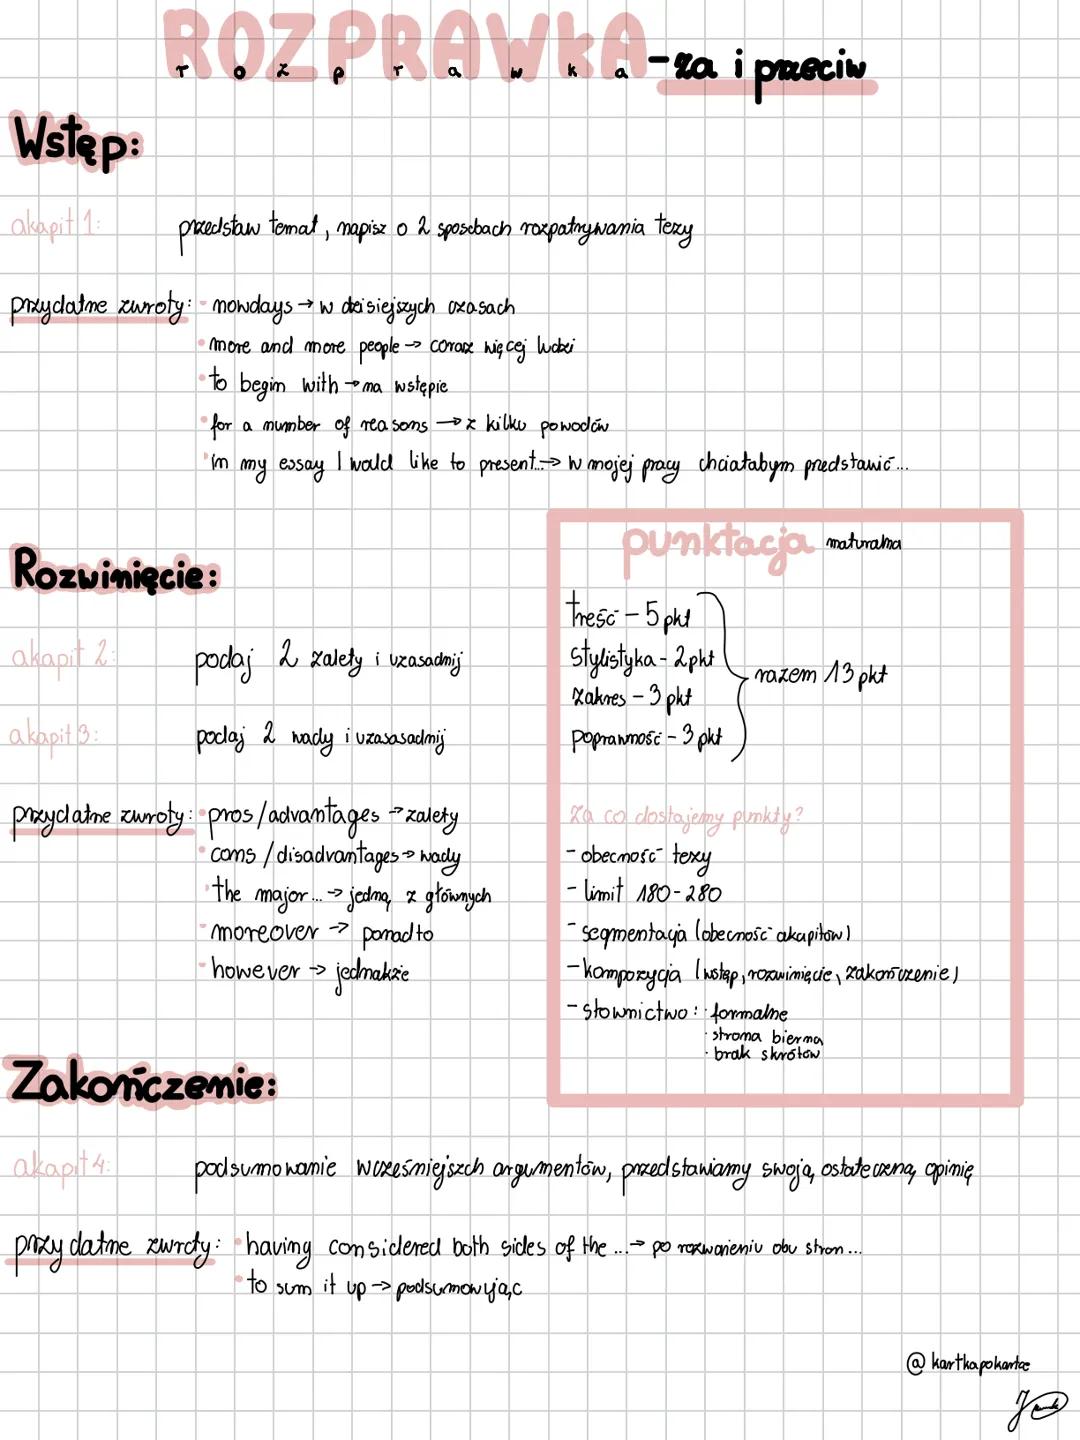 ROZPRAWKA - za i przeciw
r o z p r a w k a
Wstęp:
akapit 1: przedstaw temat, napisz o 2 sposobach rozpatrywania tezy
przydatne zwroty: • nowdays → w dzisiejszych czasach
• more and more people → coraz więcej ludzi
• to begin with → na wstępie
• for a number of reasons → z kilku powodów
• in my essay I would like to present... → w mojej pracy chciałabym predstawić...
Rozwinięcie:
akapit 2: podaj 2 zalety i uzasadnij
akapit 3: podaj 2 wady i uzasasadnij
przydatne zwroty: • pros/advantages → zalety
• cons/disadvantages → wady
• the major... → jedną z głównych
• moreover → ponadto
• however → jednakże
punktacja maturalna
treść - 5 pkt
stylistyka - 2 pkt
zakres - 3 pkt
poprawność - 3 pkt
razem 13 pkt
Za co dostajemy punkty?
- obecność tezy
- limit 180-280
- segmentacja (obecność akapitów)
- kompozycja (wstęp, rozwinięcie, zakończenie)
- słownictwo: · formalne
· strona bierna
· brak skrótów
Zakończenie:
akapit 4: podsumowanie wcześniejszch argumentów, przedstawiamy swoją ostateczną opinię
przydatne zwroty: • having considered both sides of the ... → po rozważeniu obu stron...
• to sum it up → podsumowując
@kartkapokartce